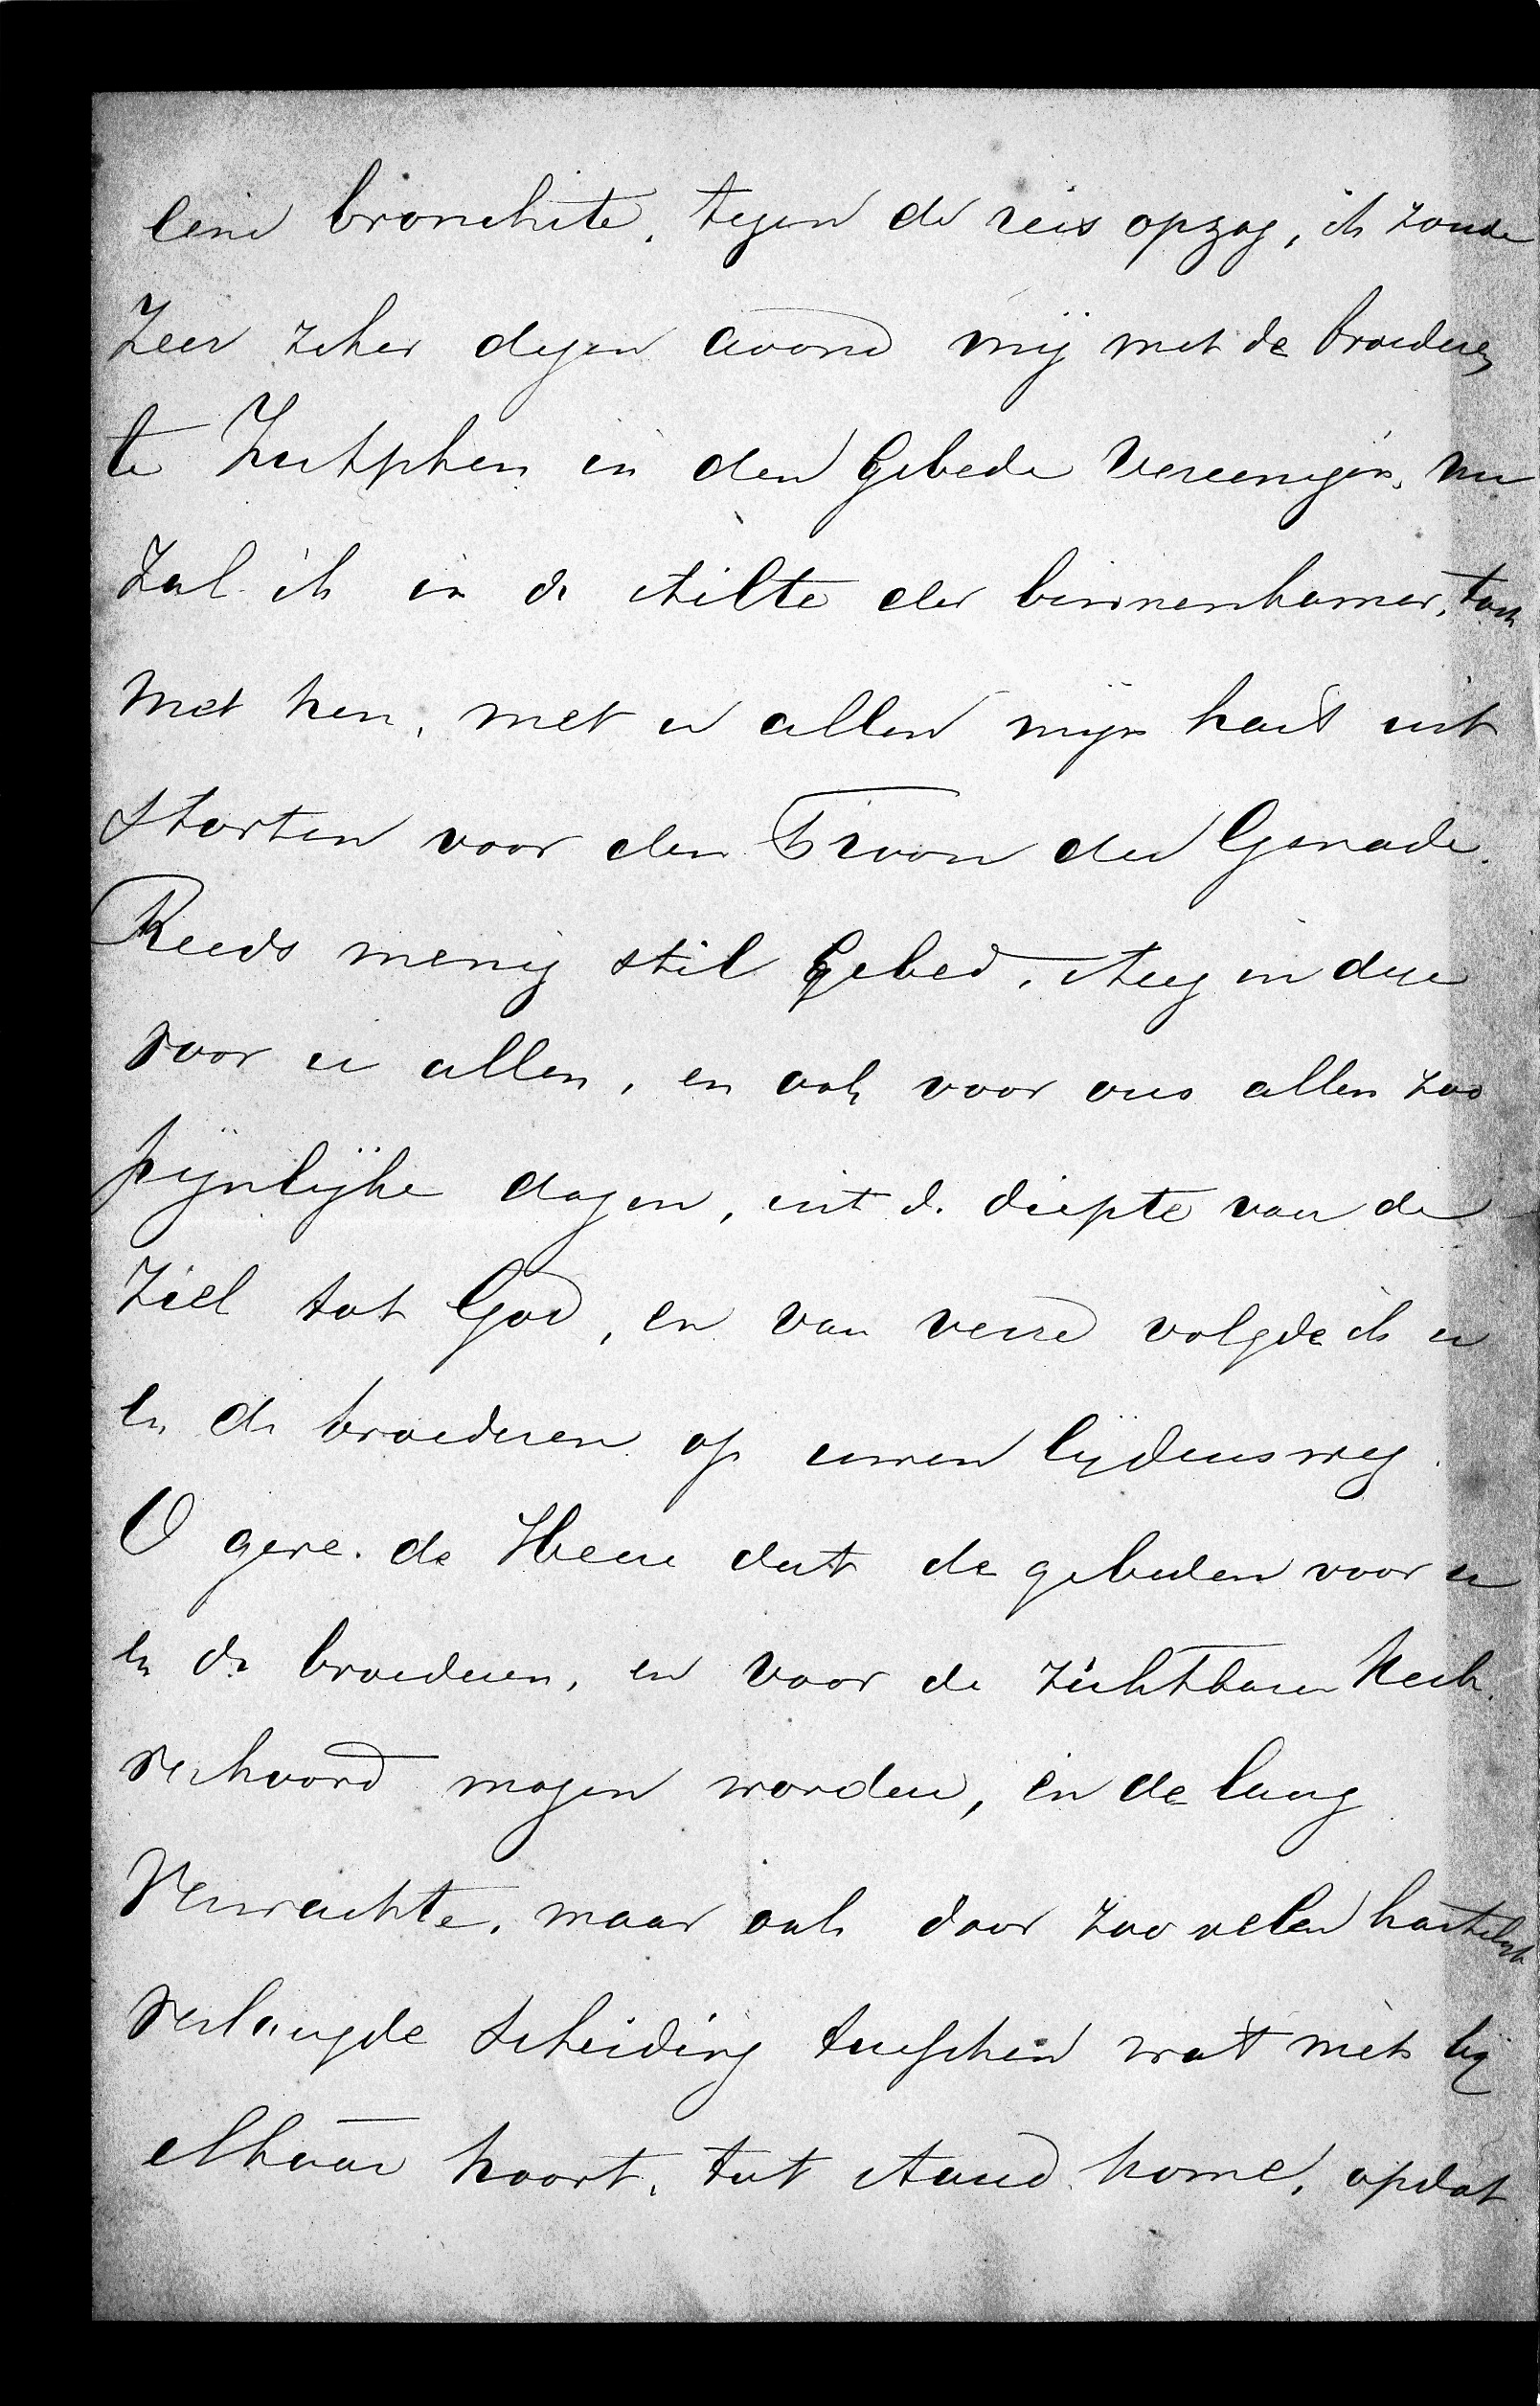 eene bronchite, tegen de reis opzag, ik zoude
Zeer zeker dezen avond mij met de broederen
te Zutphen in den Gebede Vereenigen, nu
Zal ik in de stilte der binnenkamer, toch
Met hen, met u allen mijn hart uit
storten voor den Troon der Genade.
Reeds menig stil Gebed, steeg in deze
voor u allen, en ook voor ons allen zoo
pijnlijke dagen, uit de diepte van de
Ziel tot God, en van verre volgde ik u
En de broederen op uwen lijdensweg.
O geve de Heere dat de gebeden voor u
En de broederen, en voor de zichtbare Kerk
verhoord mogen worden, en de lang
Verwachte, maar ook door zoo velen hartelijk
verlangde scheiding tusschen wat niet bij
elkaar hoort, tot stand kome, opdat